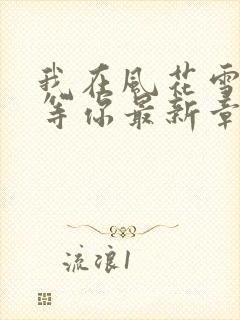 我在風花雪
等你最新章
流浪1